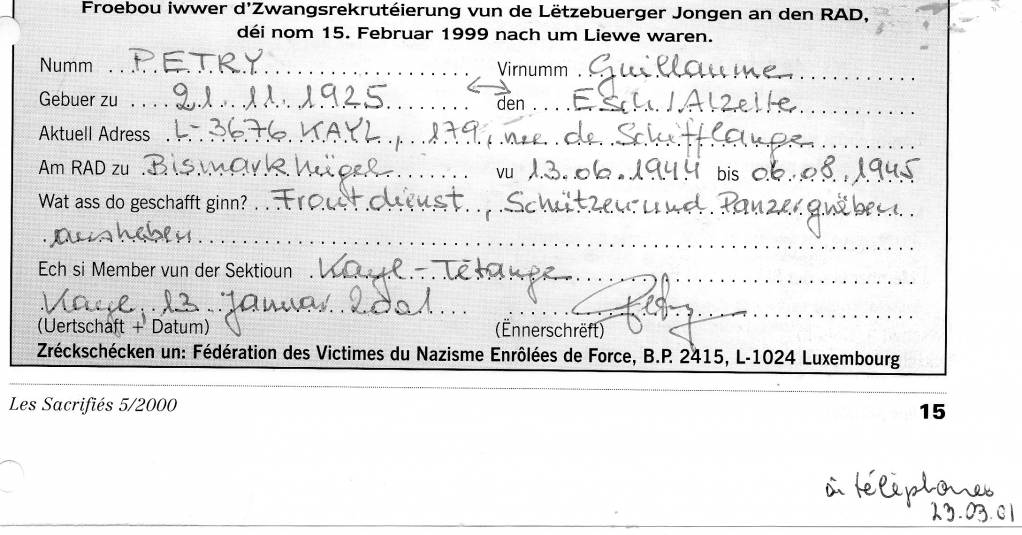 Froebou iwwer d'Zwangsrekrutéierung vun de Lëtzebuerger Jongen an den RAD,
déi nom 15. Februar 1999 nach um Liewe waren.
Numm PETRY Virnumm Guillaume
Gebuer zu 21.11.1925 den Esch/Alzette
Aktuell Adress L-3676 KAYL, 179, rue de Schifflange
Am RAD zu Bismarkhügel vu 13.06.1944 bis 06.08.1945
Wat ass do geschafft ginn? Frontdienst, Schützen und Panzergräben
ausheben
Ech si Member vun der Sektioun Kayl-Tétange
Kayl, 13 Januar 2001 Petry
(Uertschaft + Datum) (Ënnerschrëft)
Zréckschécken un: Fédération des Victimes du Nazisme Enrôlées de Force, B.P. 2415, L-1024 Luxembourg
Les Sacrifiés 5/2000 15
à téléphoner
23.03.01